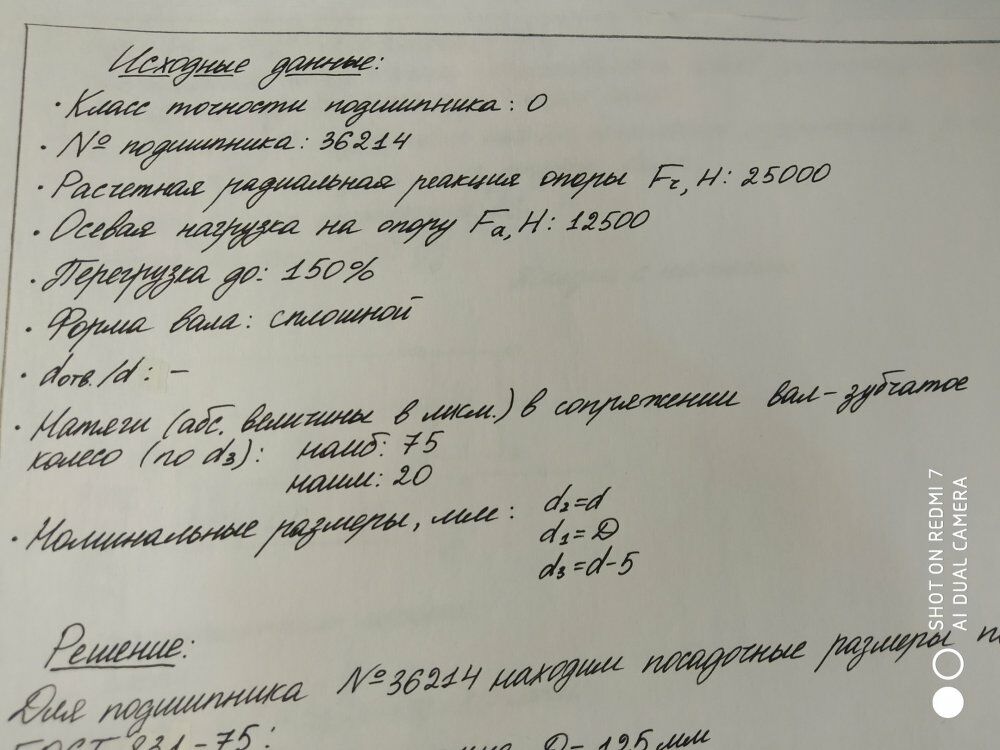 Исходные данные:
• Класс точности подшипника: 0
• № подшипника: 36214
• Расчетная радиальная реакция опоры Fr, Н: 25000
• Осевая нагрузка на опору Fa, Н: 12500
• Перегрузка до: 150%
• Форма вала: сплошной
• dотв./d: –
• Натяги (абс. величины в мкм.) в сопряжении вал-зубчатое
колесо (по d3): наиб: 75
наим: 20
• Номинальные размеры, мм: d2=d
d1=D
d3=d-5
Решение:
Для подшипника №36214 находим посадочные размеры
ГОСТ 831-75: D=125 мм
SHOT ON REDMI 7
AI DUAL CAMERA